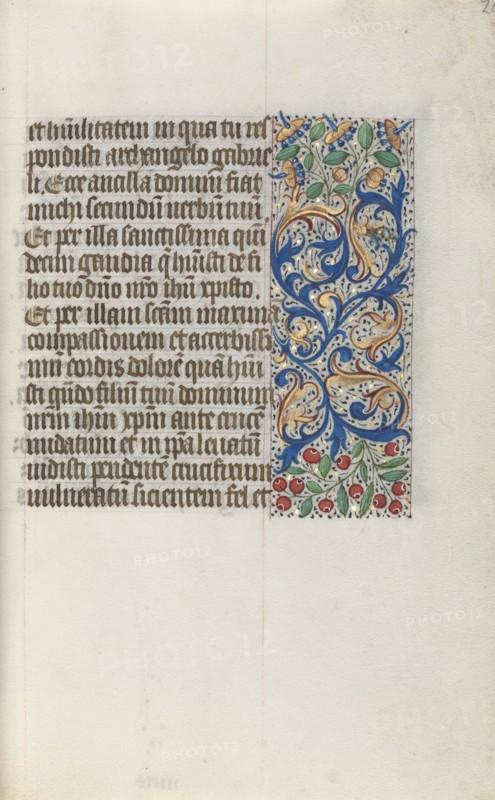 et hũilitatem in qua tu res
pondisti archangelo gabrie
li. Ecce ancilla domini fiat
michi secundũ uerbũ tuũ
Et per illa sanctissima quĩ
decim gaudia q̃ hũisti de fi
lio tuo dño nr̃o ihũ xpisto.
Et per illam scãm maximã
compassionem et acerbissi
mũ cordis dolorẽ quã hũi
sti qũdo filiũ tuũ dominum
nr̃m ihũm xpm̃ ante crucẽ
nudatum et in ip̃a leuatũ
uidisti pendentẽ crucifixum
uulneratũ sicientem fel et
PHOTO12